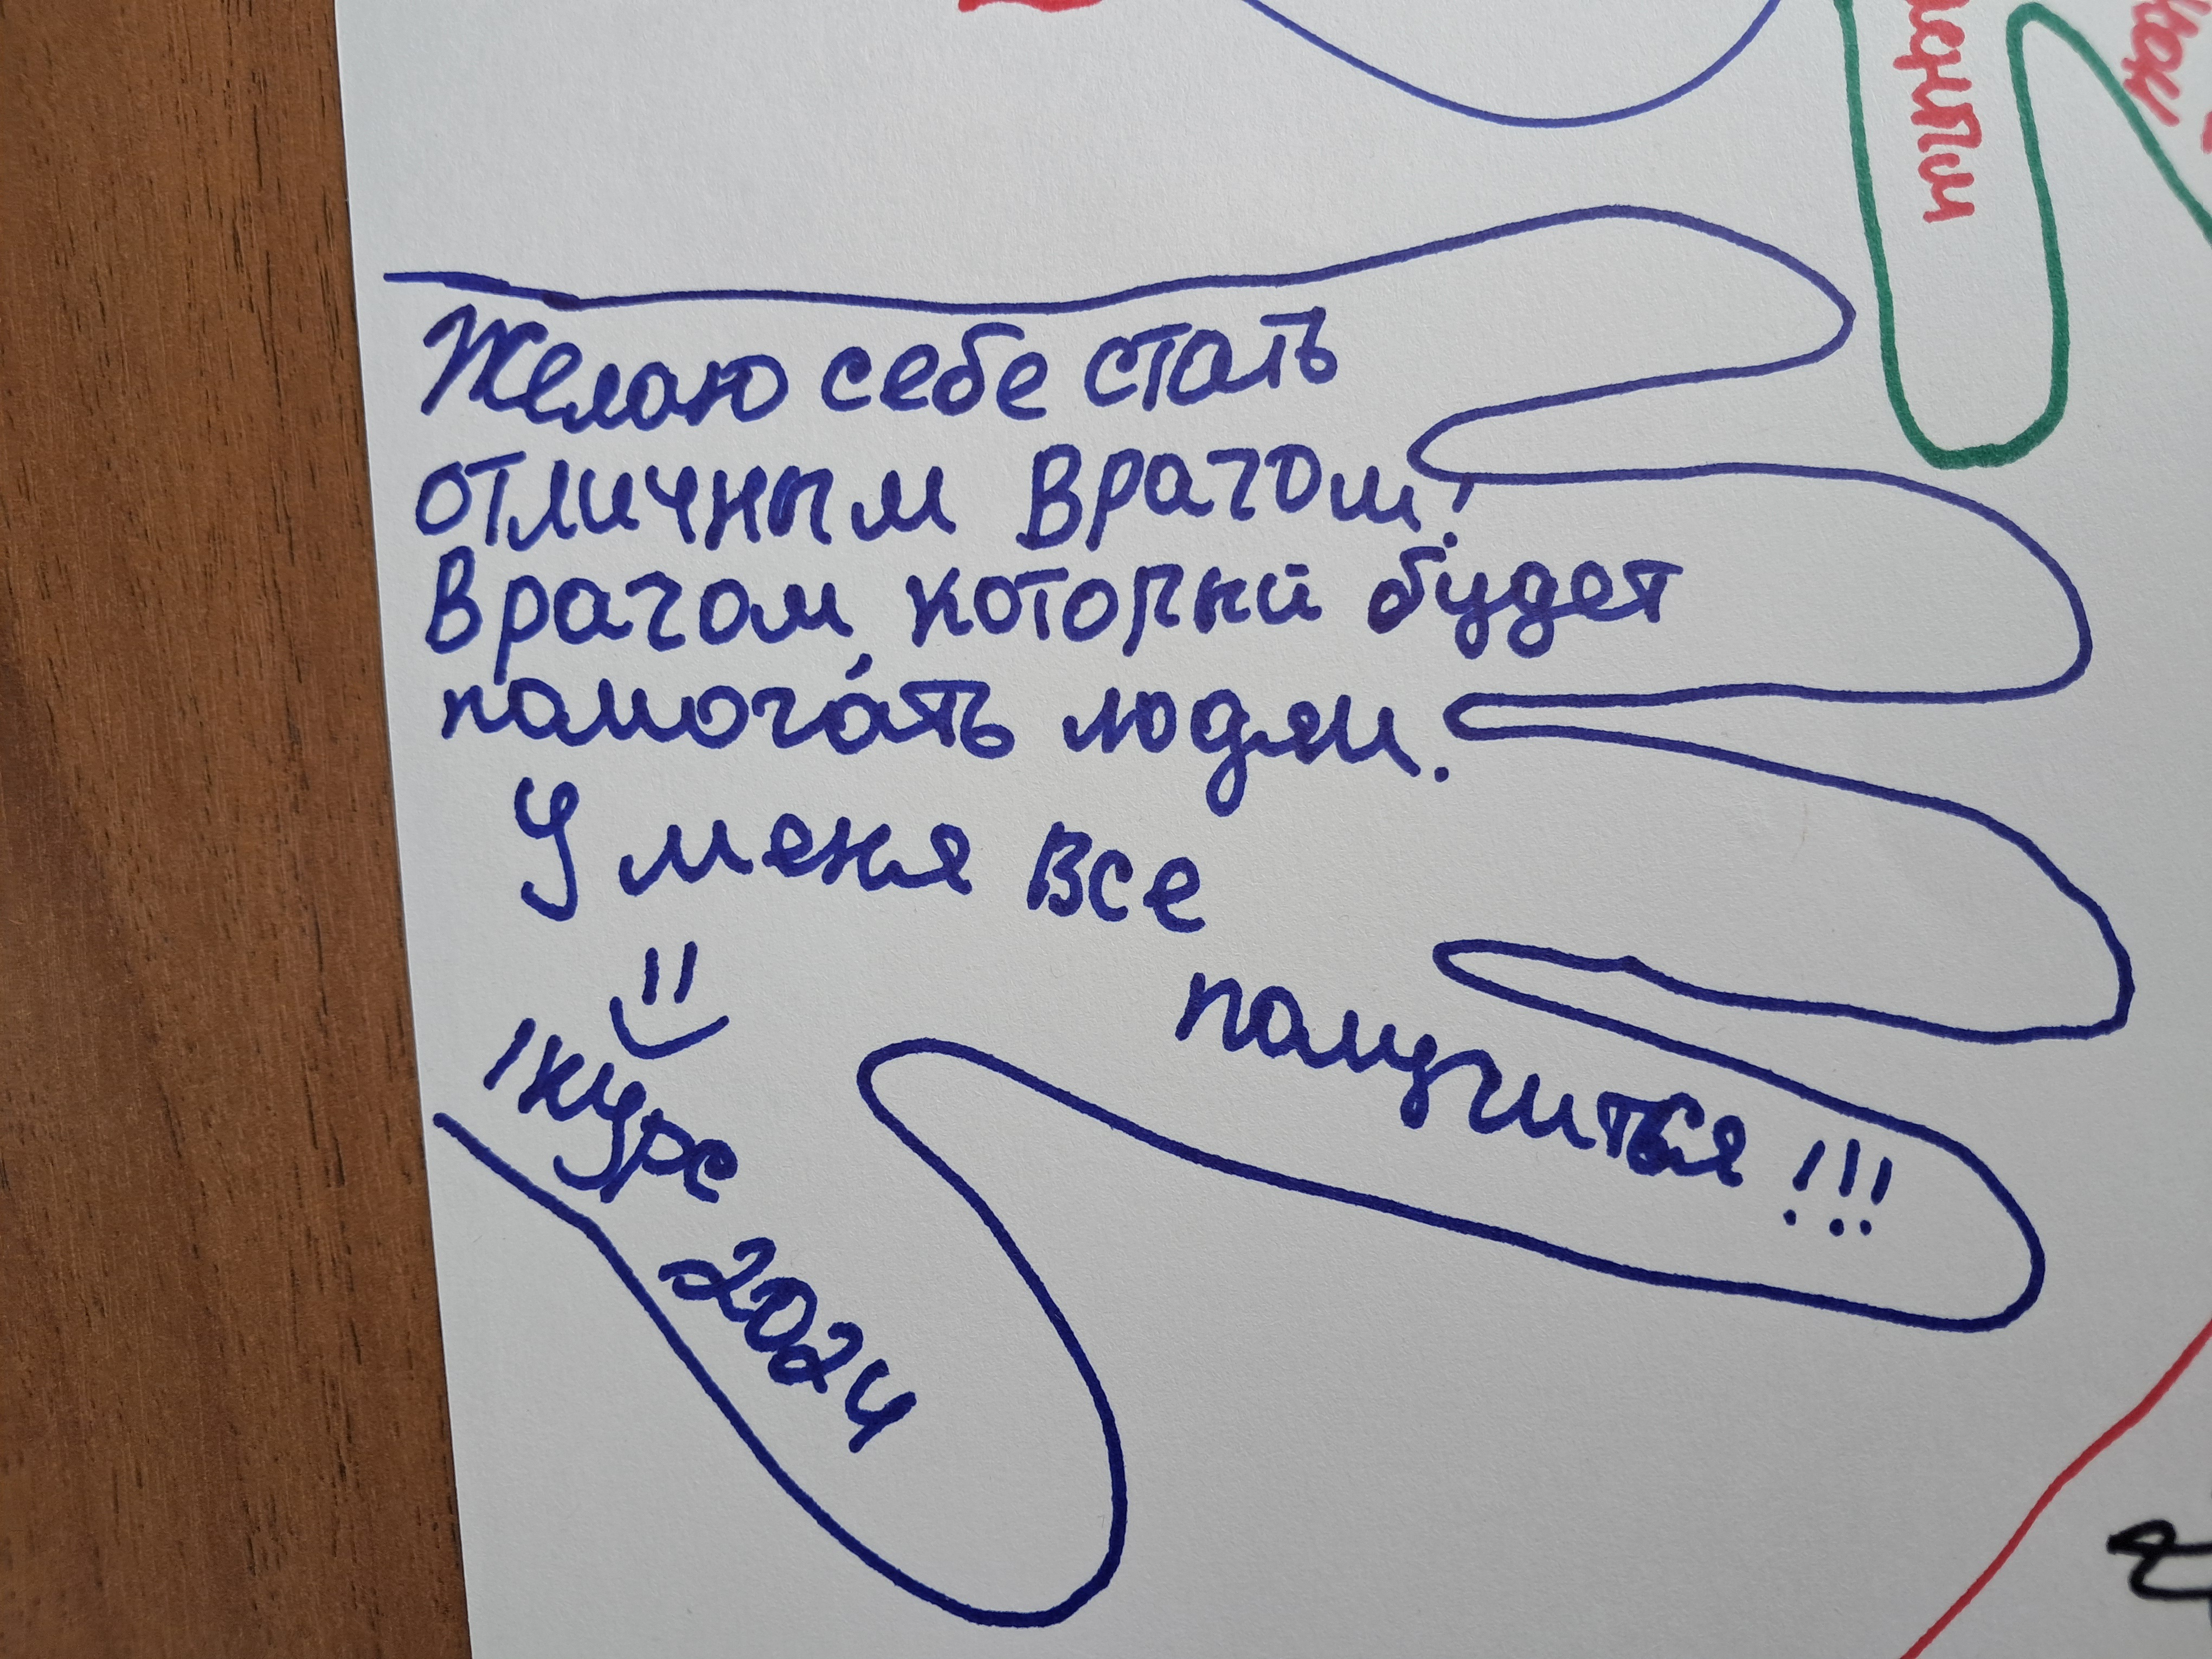 Желаю себе стать
отличным врачом!
Врачом, который будет
помогать людям.
У меня все
получиться!!!
1 курс
2024